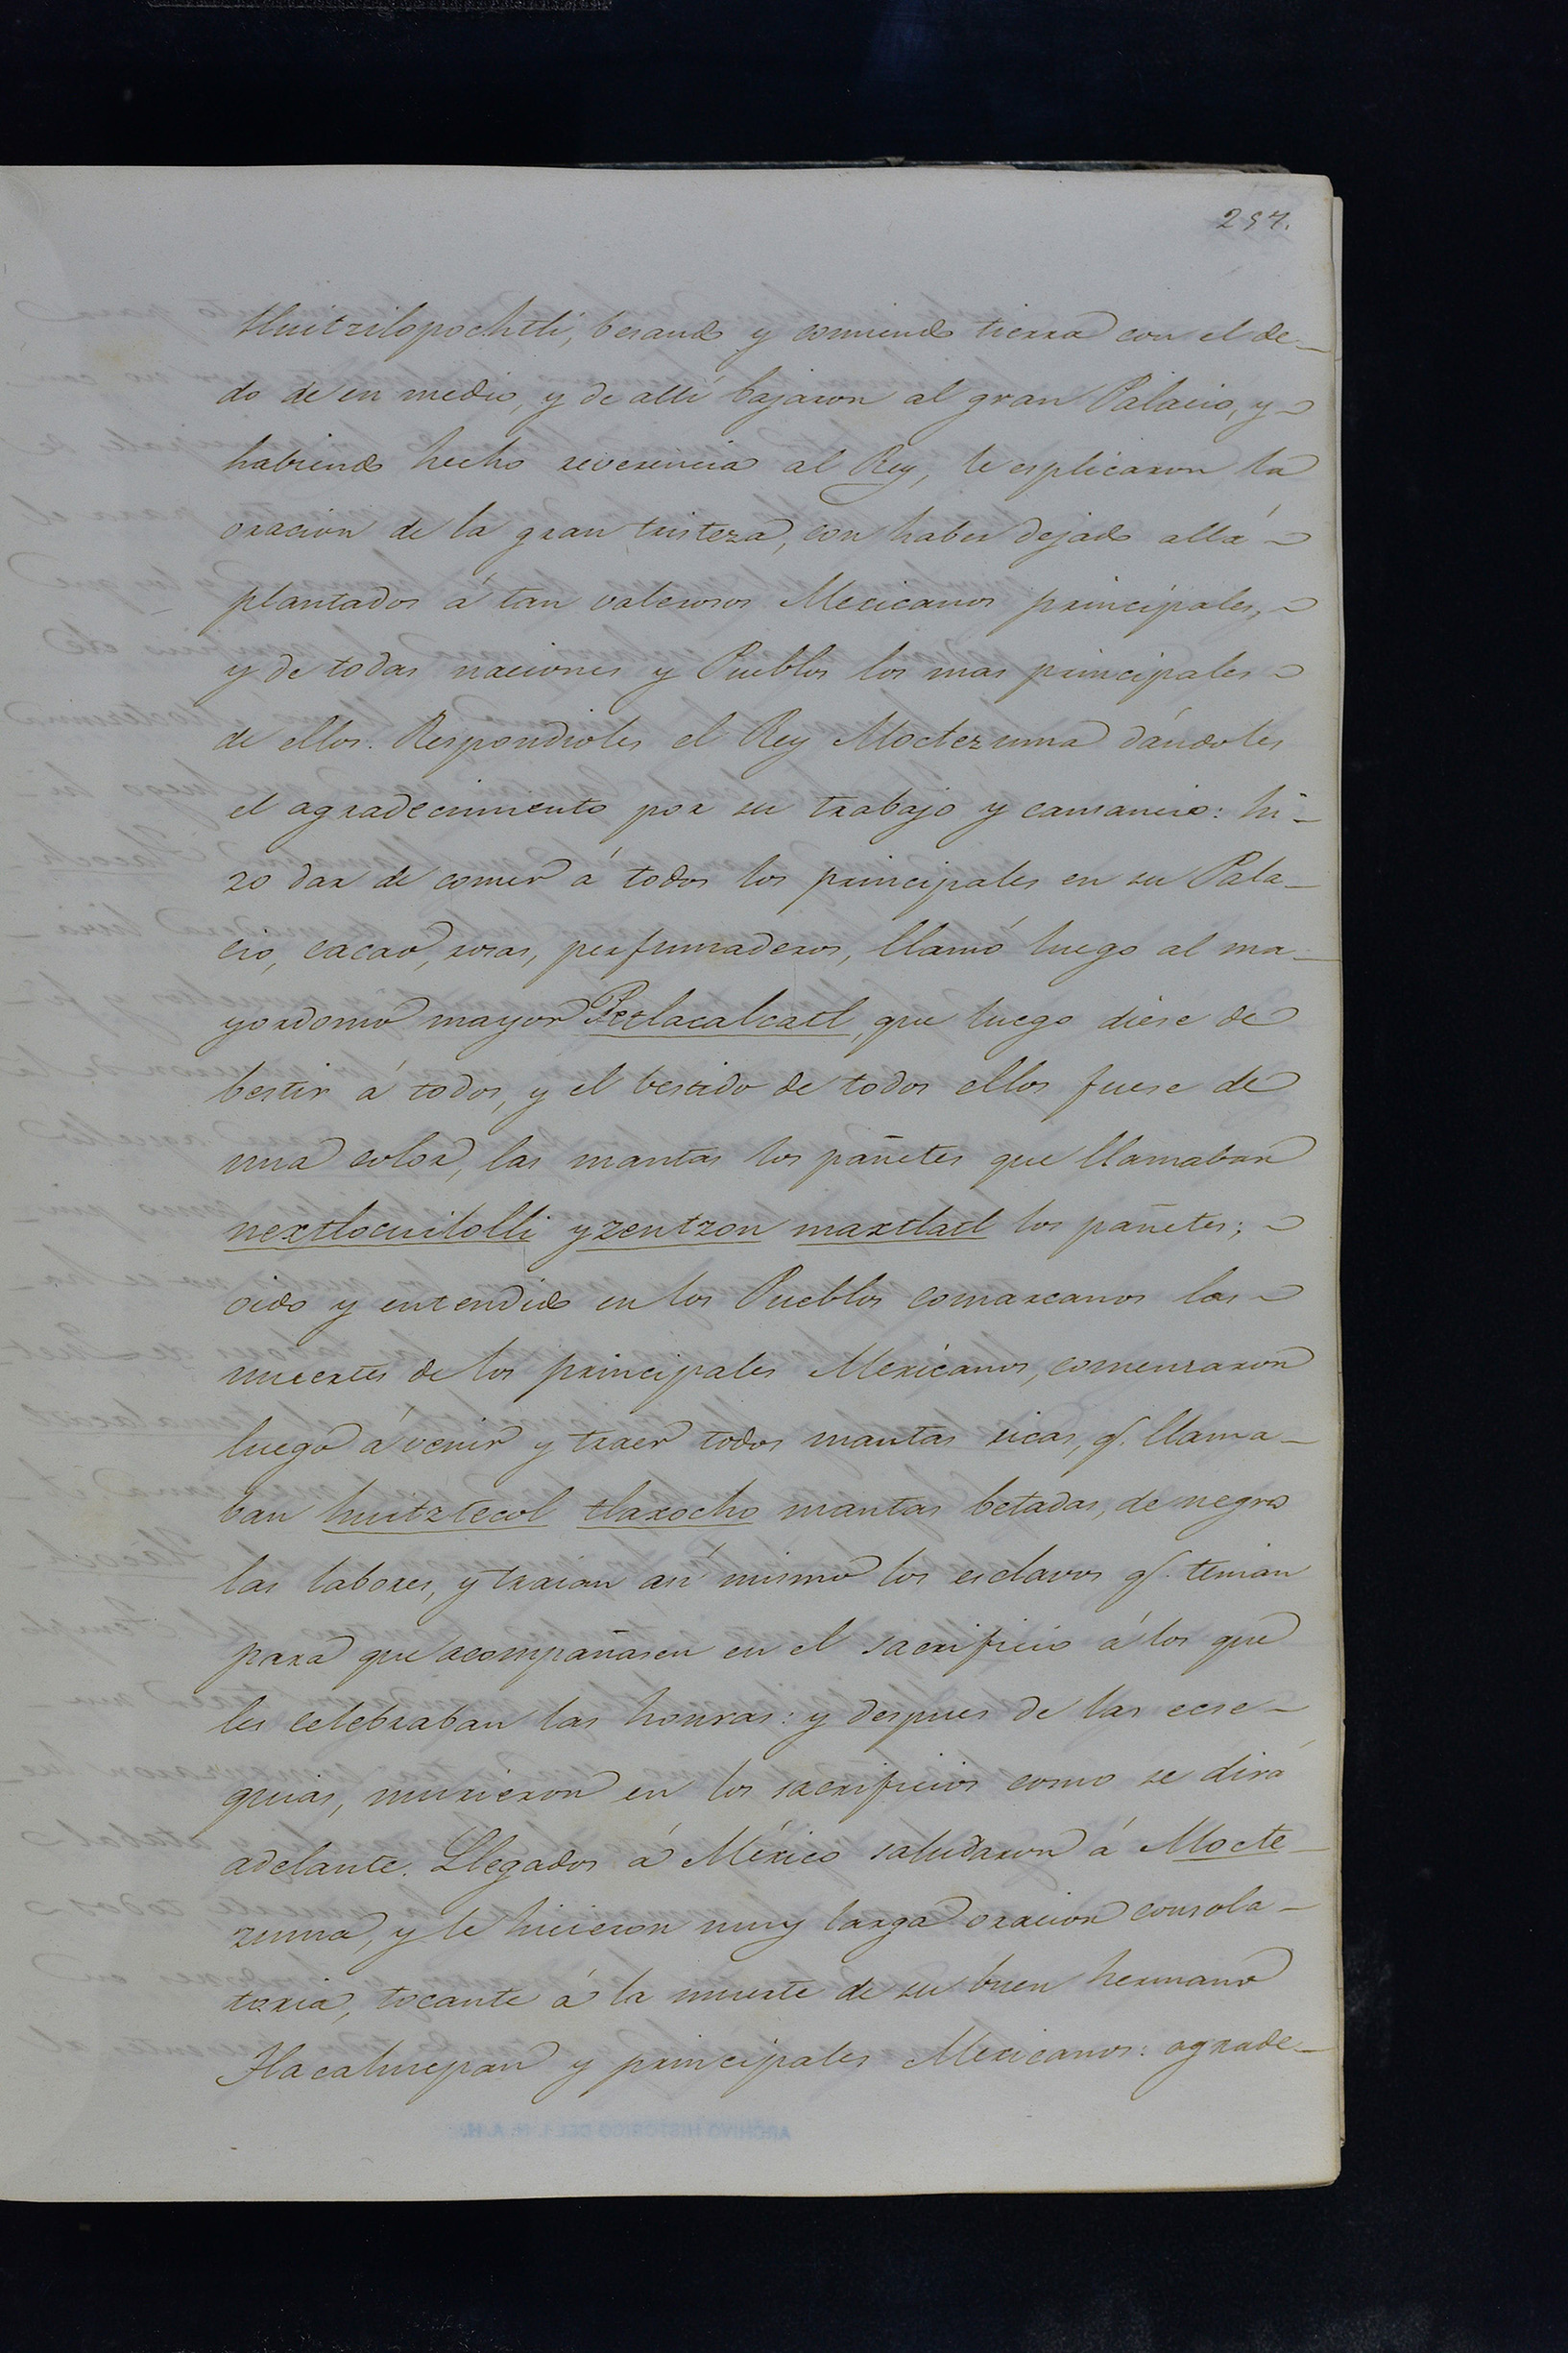 297.
Huitzilopochtli, besando y comiendo tierra con el de-
do de en medio, y de allí bajaron al gran Palacio, y
habiendo hecho reverencia al Rey, le esplicaron la
oracion de la gran tristeza, con haber dejado allá
plantados á tan valerosos Mexicanos principales,
y de todas naciones y Pueblos los mas principales
de ellos. Respondioles el Rey Moctezuma dándoles
el agradecimiento por su trabajo y cansancio: hi-
zo dar de comer á todos los principales en su Pala-
cio, cacao, rosas, perfumaderos, llamó luego al ma-
yordomo mayor Petlacalcatl, que luego diese de
bestir á todos, y el bestido de todos ellos fuese de
una color, las mantas los pañetes que llamaban
nextlocuitolli y zentzon maxtlatl los pañetes;
oido y entendido en los Pueblos comarcanos las
muertes de los principales Mexicanos, comenzaron
luego á venir y traer todos mantas ricas, q. llama-
ban huitztecol tlaxocho mantas betadas, de negro
las labores, y traian así mismo los esclavos q. tenian
para que acompañasen en el sacrificio á los que
les celebraban las honras: y despues de las ecse-
quias, murieron en los sacrificios como se dirá
adelante. Llegados á México saludaron á Mocte-
zuma, y le hicieron muy larga oracion consola-
toria, tocante á la muerte de su buen hermano
Tlacahuepan y principales Mexicanos: agrade-
ARCHIVO HISTORICO DEL I. N. A. H.